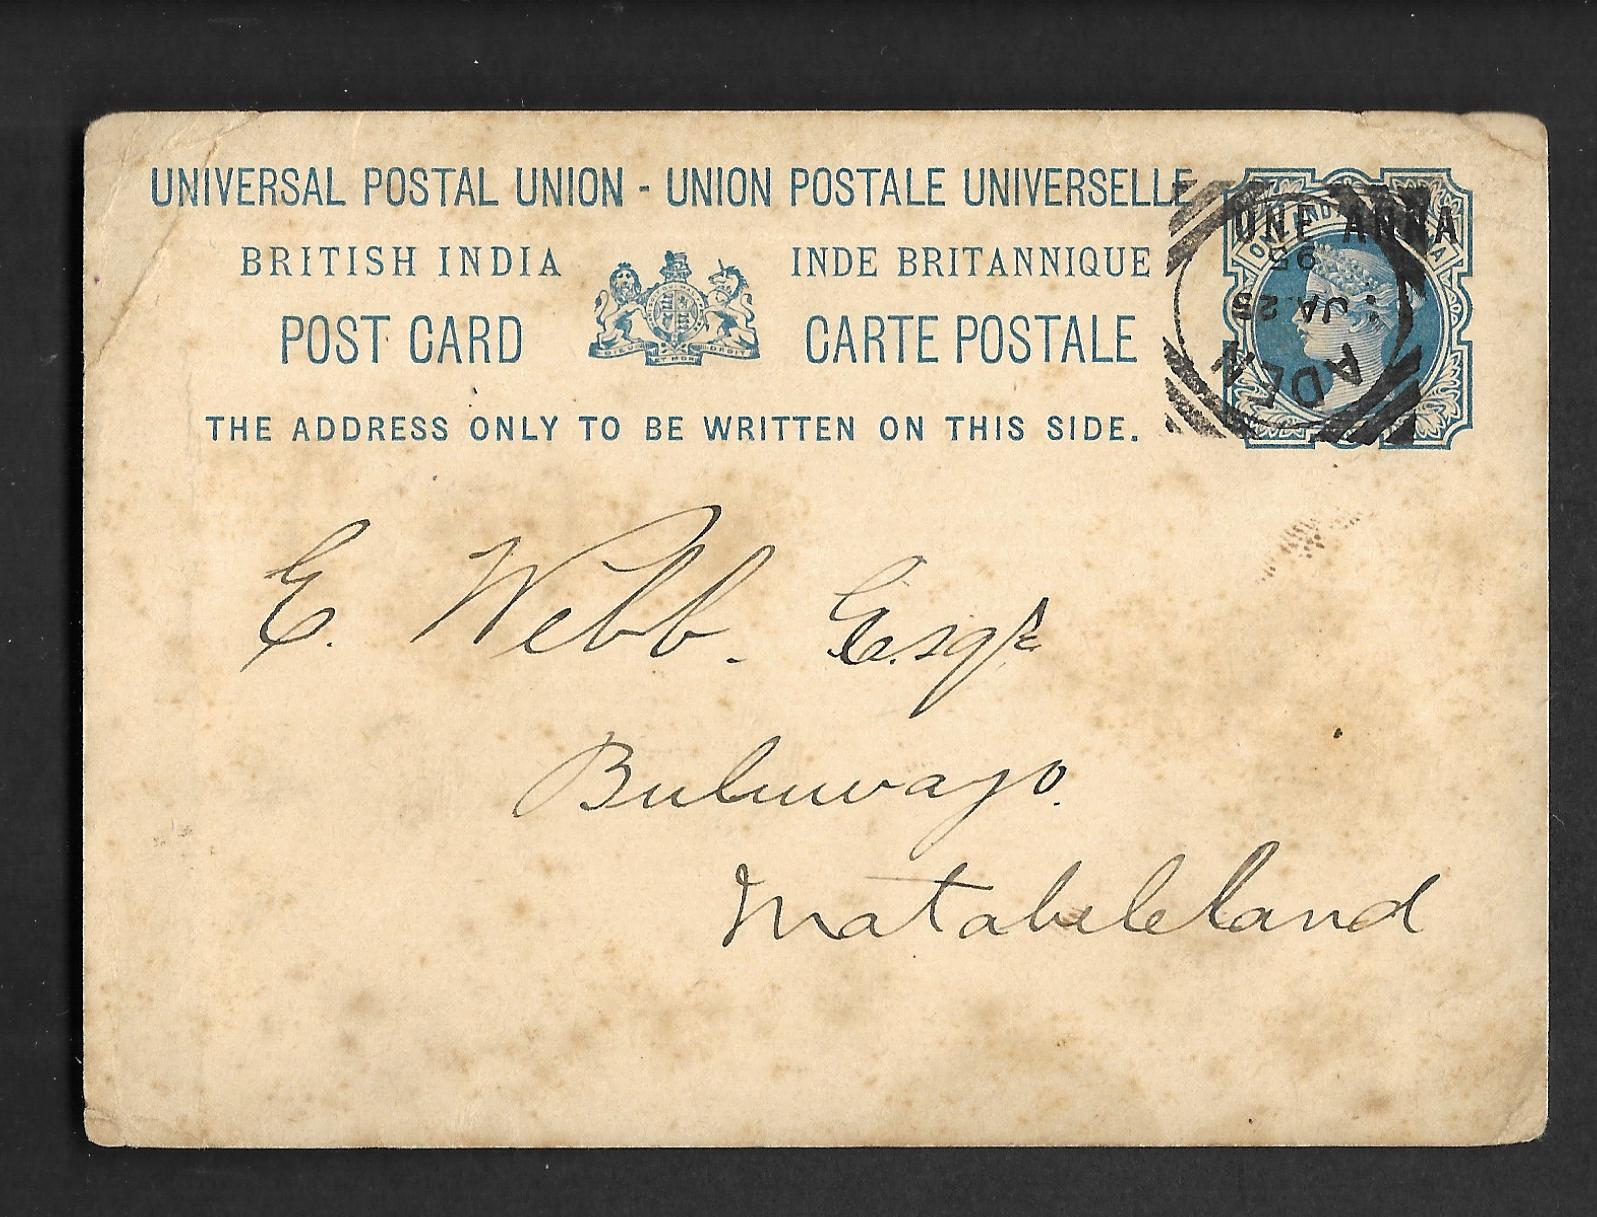 UNIVERSAL POSTAL UNION - UNION POSTALE UNIVERSELLE
BRITISH INDIA INDE BRITANNIQUE
POST CARD CARTE POSTALE
THE ADDRESS ONLY TO BE WRITTEN ON THIS SIDE.
ONE ANNA
ADEN
JA. 25
95
E. Webb. Esqr
Buluwayo.
Matabeleland